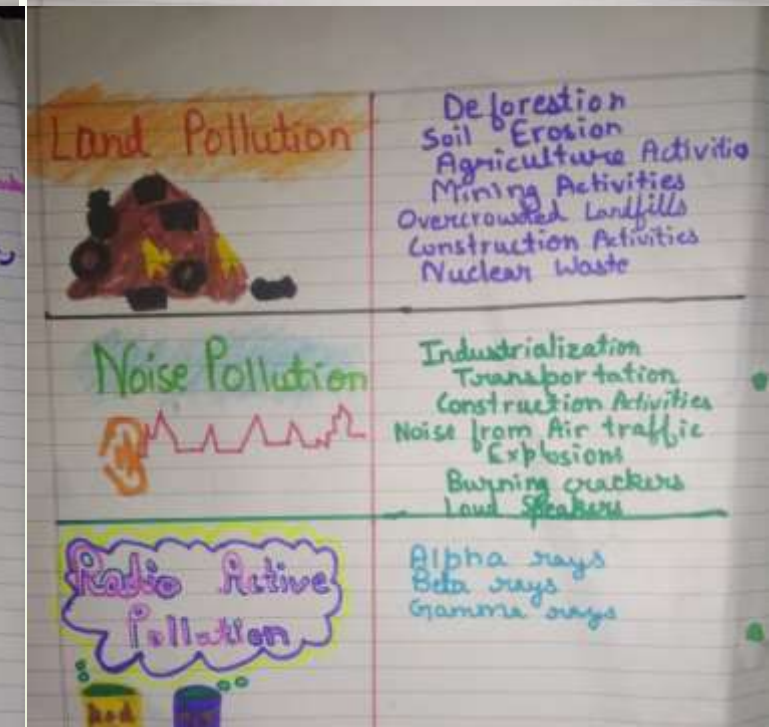 Land Pollution
Deforestion
Soil Erosion
Agriculture Activitio
Mining Activities
Overcrowded Landfills
Construction Activities
Nuclear Waste
Noise Pollution
Industrialization
Transportation
Construction Activities
Noise from Air traffic
Explosions
Burning crackers
Loud Speakers
Radio Active
Pollution
Alpha rays
Beta rays
Gamma rays